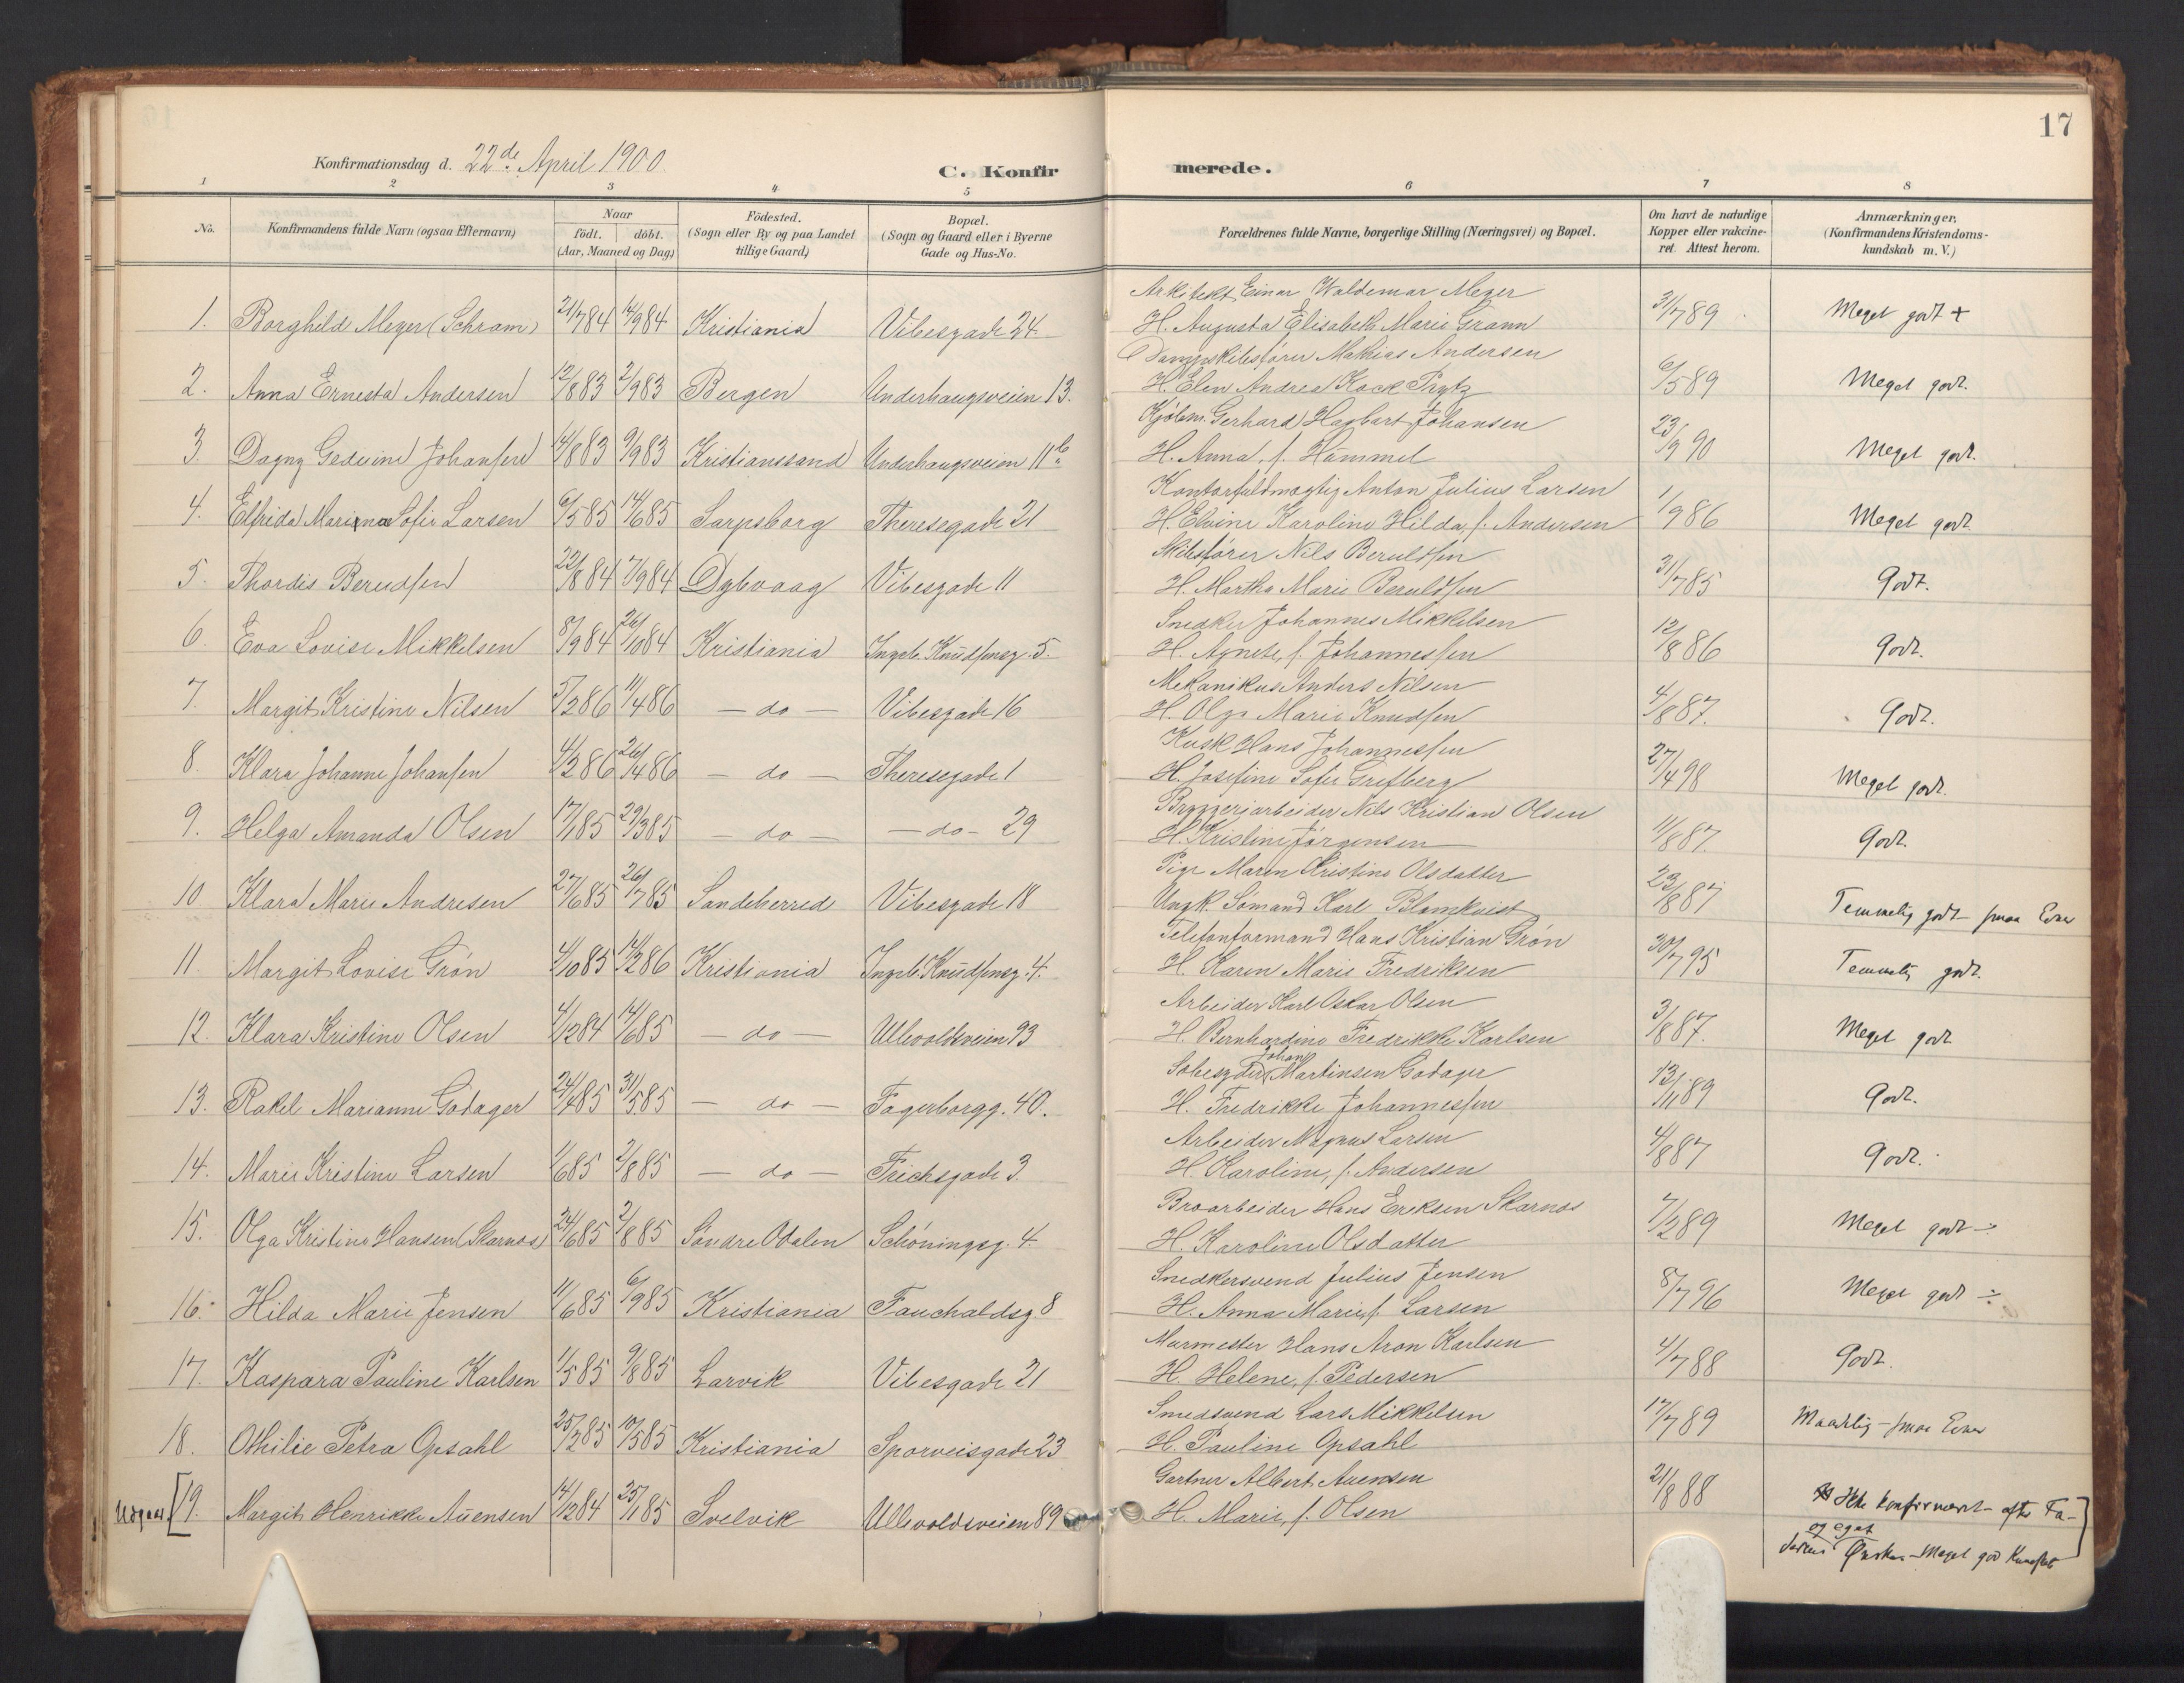 17
Konfirmationsdag d. 22de April 1900.
C. Konfirmerede.
1 2 3 4 5 6 7 8
No. Konfirmandens fulde Navn (ogsaa Efternavn) Naar født. døbt. (Aar, Maaned og Dag) Fødested. (Sogn eller By og paa Landet tillige Gaard) Bopæl. (Sogn og Gaard eller i Byerne Gade og Hus-No. Forældrenes fulde Navne, borgerlige Stilling (Næringsvei) og Bopæl. Om havt de naturlige Kopper eller vakcineret. Attest herom. Anmærkninger. (Konfirmandens Kristendomskundskab m. V.)
Arkitekt Einar Waldemar Meyer
1. Borghild Meyer (Schram) 21/7 84 14/9 84 Kristiania Vibesgade 24 H. Augusta Elisabeth Marie Gramn 31/7 89 Meget godt +
Dampskibsfører Mathias Andersen
2. Anna Ernesta Andersen 12/8 83 2/9 83 Bergen Underhaugsveien 13. H. Elen Andrea Kock Prytz 6/5 89 Meget godt.
Kjøbm. Gerhard Hagbart Johansen
3. Dagny Geduine Johansen 14/8 83 9/9 83 Kristianssand Underhaugsveien 11 b H. Anna, f. Hammel 23/9 90 Meget godt.
Kontorfuldmægtig Anton Julius Larsen
4. Elfrida Marina Sofie Larsen 6/5 85 14/6 85 Sarpsborg Theresegade 21 H. Elvine Karoline Hilda, f. Andersen 1/9 86 Meget godt.
Skibsfører Nils Beruldsen
5. Thordis Beruldsen 22/8 84 7/9 84 Dybvaag Vibesgade 11 H. Martha Marie Beruldsen 31/7 85 Godt.
Snedker Johannes Mikkelsen
6. Eva Lovise Mikkelsen 8/9 84 26/10 84 Kristiania Ingeb. Knudsensg. 5. H. Agnete, f. Johannessen 12/8 86 Godt.
Mekanikus Anders Nilsen
7. Margit Kristine Nilsen 5/2 86 11/4 86 — do — Vibesgade 16 H. Olga Marie Knudsen 4/8 87. Godt.
Kusk Hans Johannessen
8. Klara Johanne Johansen 4/2 86 26/4 86 — do — Theresegade 1 H. Josefine Sofie Grefberg 27/4 98 Meget godt.
Bryggeriarbeider Nils Kristian Olsen
9. Helga Amanda Olsen 17/1 85 29/3 85 — do — — do — 29 H. Kristine Jørgensen 11/8 87. Godt.
Pige Maren Kristine Olsdatter
10 Klara Marie Andresen 27/6 85 26/7 85 Sandeherred Vibesgade 18 Ungk. Sømand Karl Blomkvist 23/8 87 Temmelig godt - smaa Evner
Telefonformand Hans Kristian Grøn
11. Margit Lovise Grøn 4/10 85 14/2 86 Kristiania Ingeb. Knudsensg. 4. H. Karen Marie Fredriksen 30/7 95 Temmelig godt.
Arbeider Karl Oskar Olsen
12. Klara Kristine Olsen 4/12 84 14/6 85 — do — Ullevoldsveien 93 H. Bernhardine Fredrikke Karlsen 3/8 87. Meget godt
Johan Martinsen Godager
13. Rakel Marianne Godager 24/4 85 31/5 85 — do — Fagerborgg. 40. H. Fredrikke Johannessen 13/11 89 Godt.
Arbeider Magnus Larsen
14. Marie Kristine Larsen 1/6 85 2/8 85 — do — Frichsgade 3. H. Karoline, f. Andersen 4/8 87 Godt.
Broarbeider Hans Eriksen Skarnos
15. Olga Kristine Hansen (Skarnos) 24/6 85 2/8 85 Søndre Odalen Schøningsg. 4. H. Karoline Olsdatter 7/2 89 Meget godt ÷
Snedkersvend Julius Jensen
16. Hilda Marie Jensen 11/6 85 6/9 85 Kristiania Fauchaldsg. 8 H. Anna Marie, f. Larsen 8/7 96 Meget godt ÷
Murmester Hans Aron Karlsen
17. Kaspara Pauline Karlsen 1/5 85 9/8 85 Larvik Vibesgade 21 H. Helene, f. Pedersen 4/7 88 Godt.
Smedsvend Lars Mikkelsen
18. Othilie Petra Opsahl 25/2 85 10/5 85 Kristiania Sporveisgade 23 H. Pauline Opsahl 17/7 89 Maadelig - smaa Evner
Gartner Albert Auensen
Udgaar [19. Margit Henrikke Auensen 14/12 84 25/1 85 Svelvik Ullevoldsveien 89 H. Marie, f. Olsen 21/8 88 Ikke konfirmeret - efter Fa-
og eget
derens Ønske. - Meget god Kundskab]